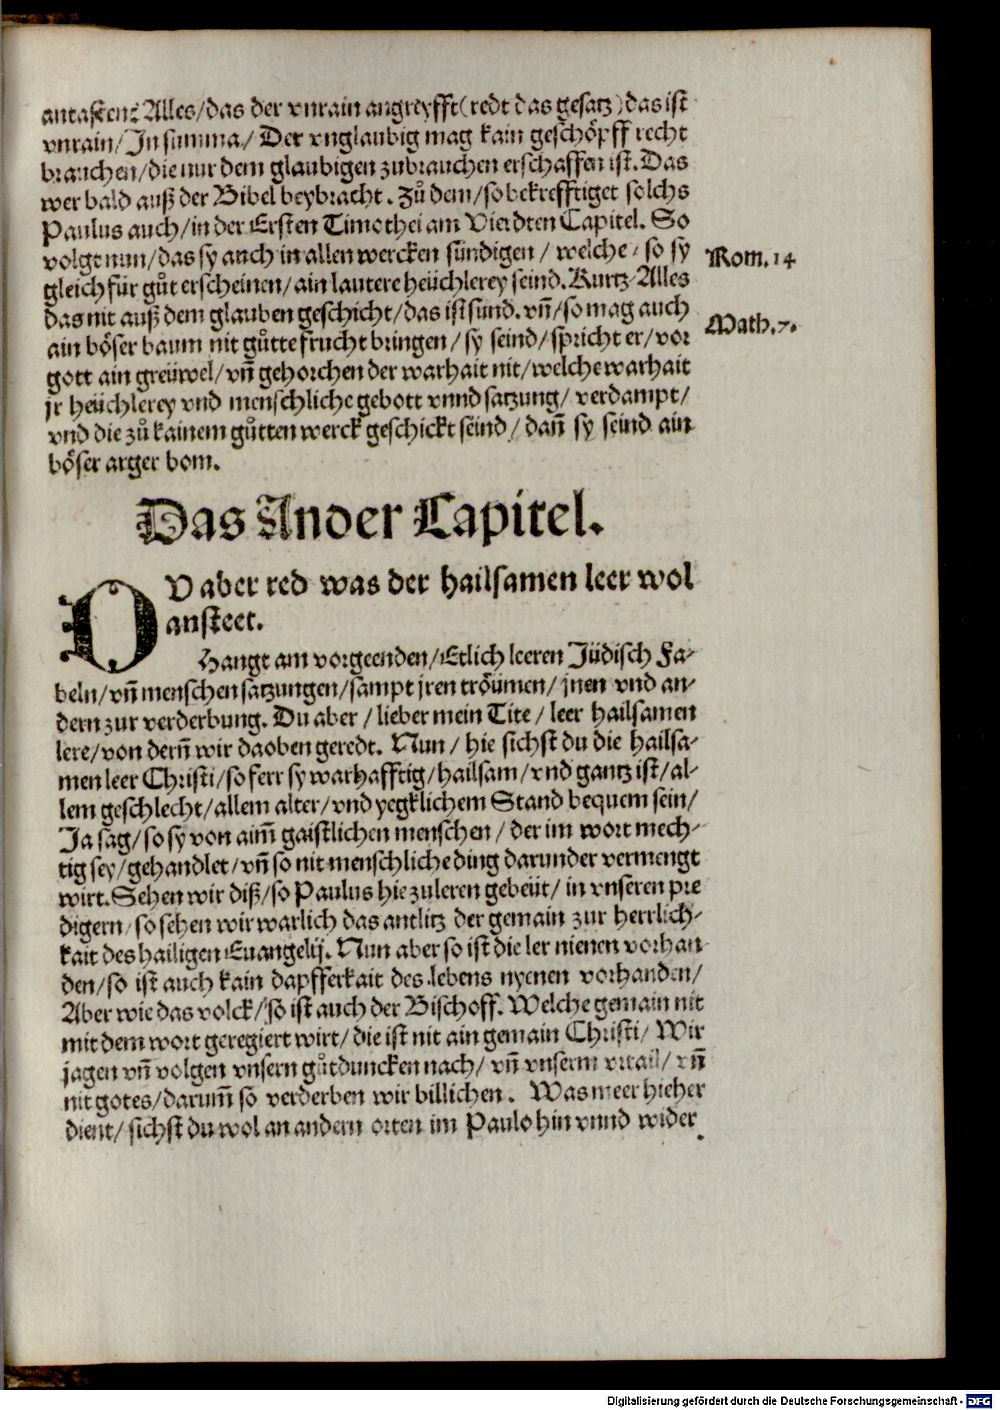 antasten? Alles/das der vnrain angreyfft(redt das gesatz)das ist
vnrain/In summa/ Der vnglaubig mag kain geschöpff recht
brauchen/die nur dem glaubigen zubrauchen erschaffen ist. Das
wer bald auß der Bibel beybracht. Zů dem/so bekrefftiget solchs
Paulus auch/in der Ersten Timothei am Vierdten Capitel. So
volgt nun/das sy auch in allen wercken sündigen/ welche/ so sy
gleich für gůt erscheinen/ain lautere heüchlerey seind. Kurtz/Alles
das nit auß dem glauben geschicht/das ist sünd. vñ/so mag auch
ain böser baum nit gůtte frucht bringen/ sy seind/spricht er/vor
gott ain greüwel/vñ gehorchen der warhait nit/welche warhait
jr heüchlerey vnd menschliche gebott vnnd satzung/ verdampt/
vnd die zů kainem gůtten werck geschickt seind/ dañ sy seind ain
böser arger bom.
Rom. 14
Math. 7.
Das Ander Capitel.
DV aber red was der hailsamen leer wol
ansteet.
Hangt am vorgeenden/Etlich leeren Jüdisch Fa-
beln/vñ menschen satzungen/sampt jren tröümen/ jnen vnd an-
dern zur verderbung. Du aber/ lieber mein Tite/ leer hailsamen
lere/von derñ wir daoben geredt. Nun/ hie sichst du die hailsa-
men leer Christi/so ferr sy warhafftig/hailsam/vnd gantz ist/al-
lem geschlecht/allem alter/vnd yegklichem Stand bequem sein/
Ja sag/so sy von aim̃ gaistlichen menschen/ der im wort mech-
tig sey/gehandlet/vñ so nit menschliche ding darunder vermengt
wirt. Sehen wir diß/so Paulus hie zuleren gebeüt/in vnseren pre
digern/so sehen wir warlich das antlitz der gemain zur herrlich-
kait des hailigen Euangelij. Nun aber so ist die ler nienen vorhan
den/so ist auch kain dapfferkait des lebens nyenen vorhanden/
Aber wie das volck/so ist auch der Bischoff. Welche gemain nit
mit dem wort geregiert wirt/die ist nit ain gemain Christi/ Wir
jagen vñ volgen vnsern gůtduncken nach/ vñ vnserm vrtail/ vñ
nit gotes/darum̃ so verderben wir billichen. Was meer hieher
dient/sichst du wol an andern orten im Paulo hin vnnd wider.
Digitalisierung gefördert durch die Deutsche Forschungsgemeinschaft - DFG